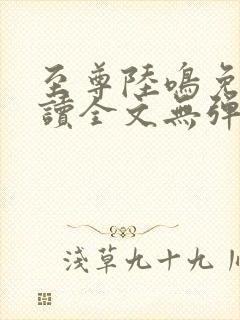 至尊陸鳴免
讀全文無彈
淺草九十九